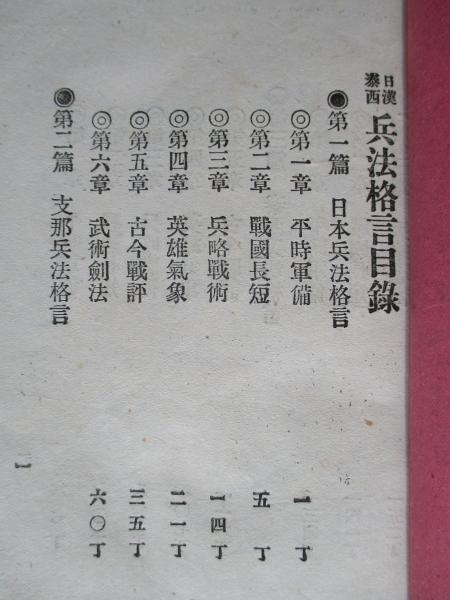 日漢泰西 兵法格言目錄
●第一篇 日本兵法格言
◎第一章 平時軍備 一丁
◎第二章 戰國長短 五丁
◎第三章 兵略戰術 一四丁
◎第四章 英雄氣象 二一丁
◎第五章 古今戰評 三五丁
◎第六章 武術劍法 六〇丁
●第二篇 支那兵法格言
一